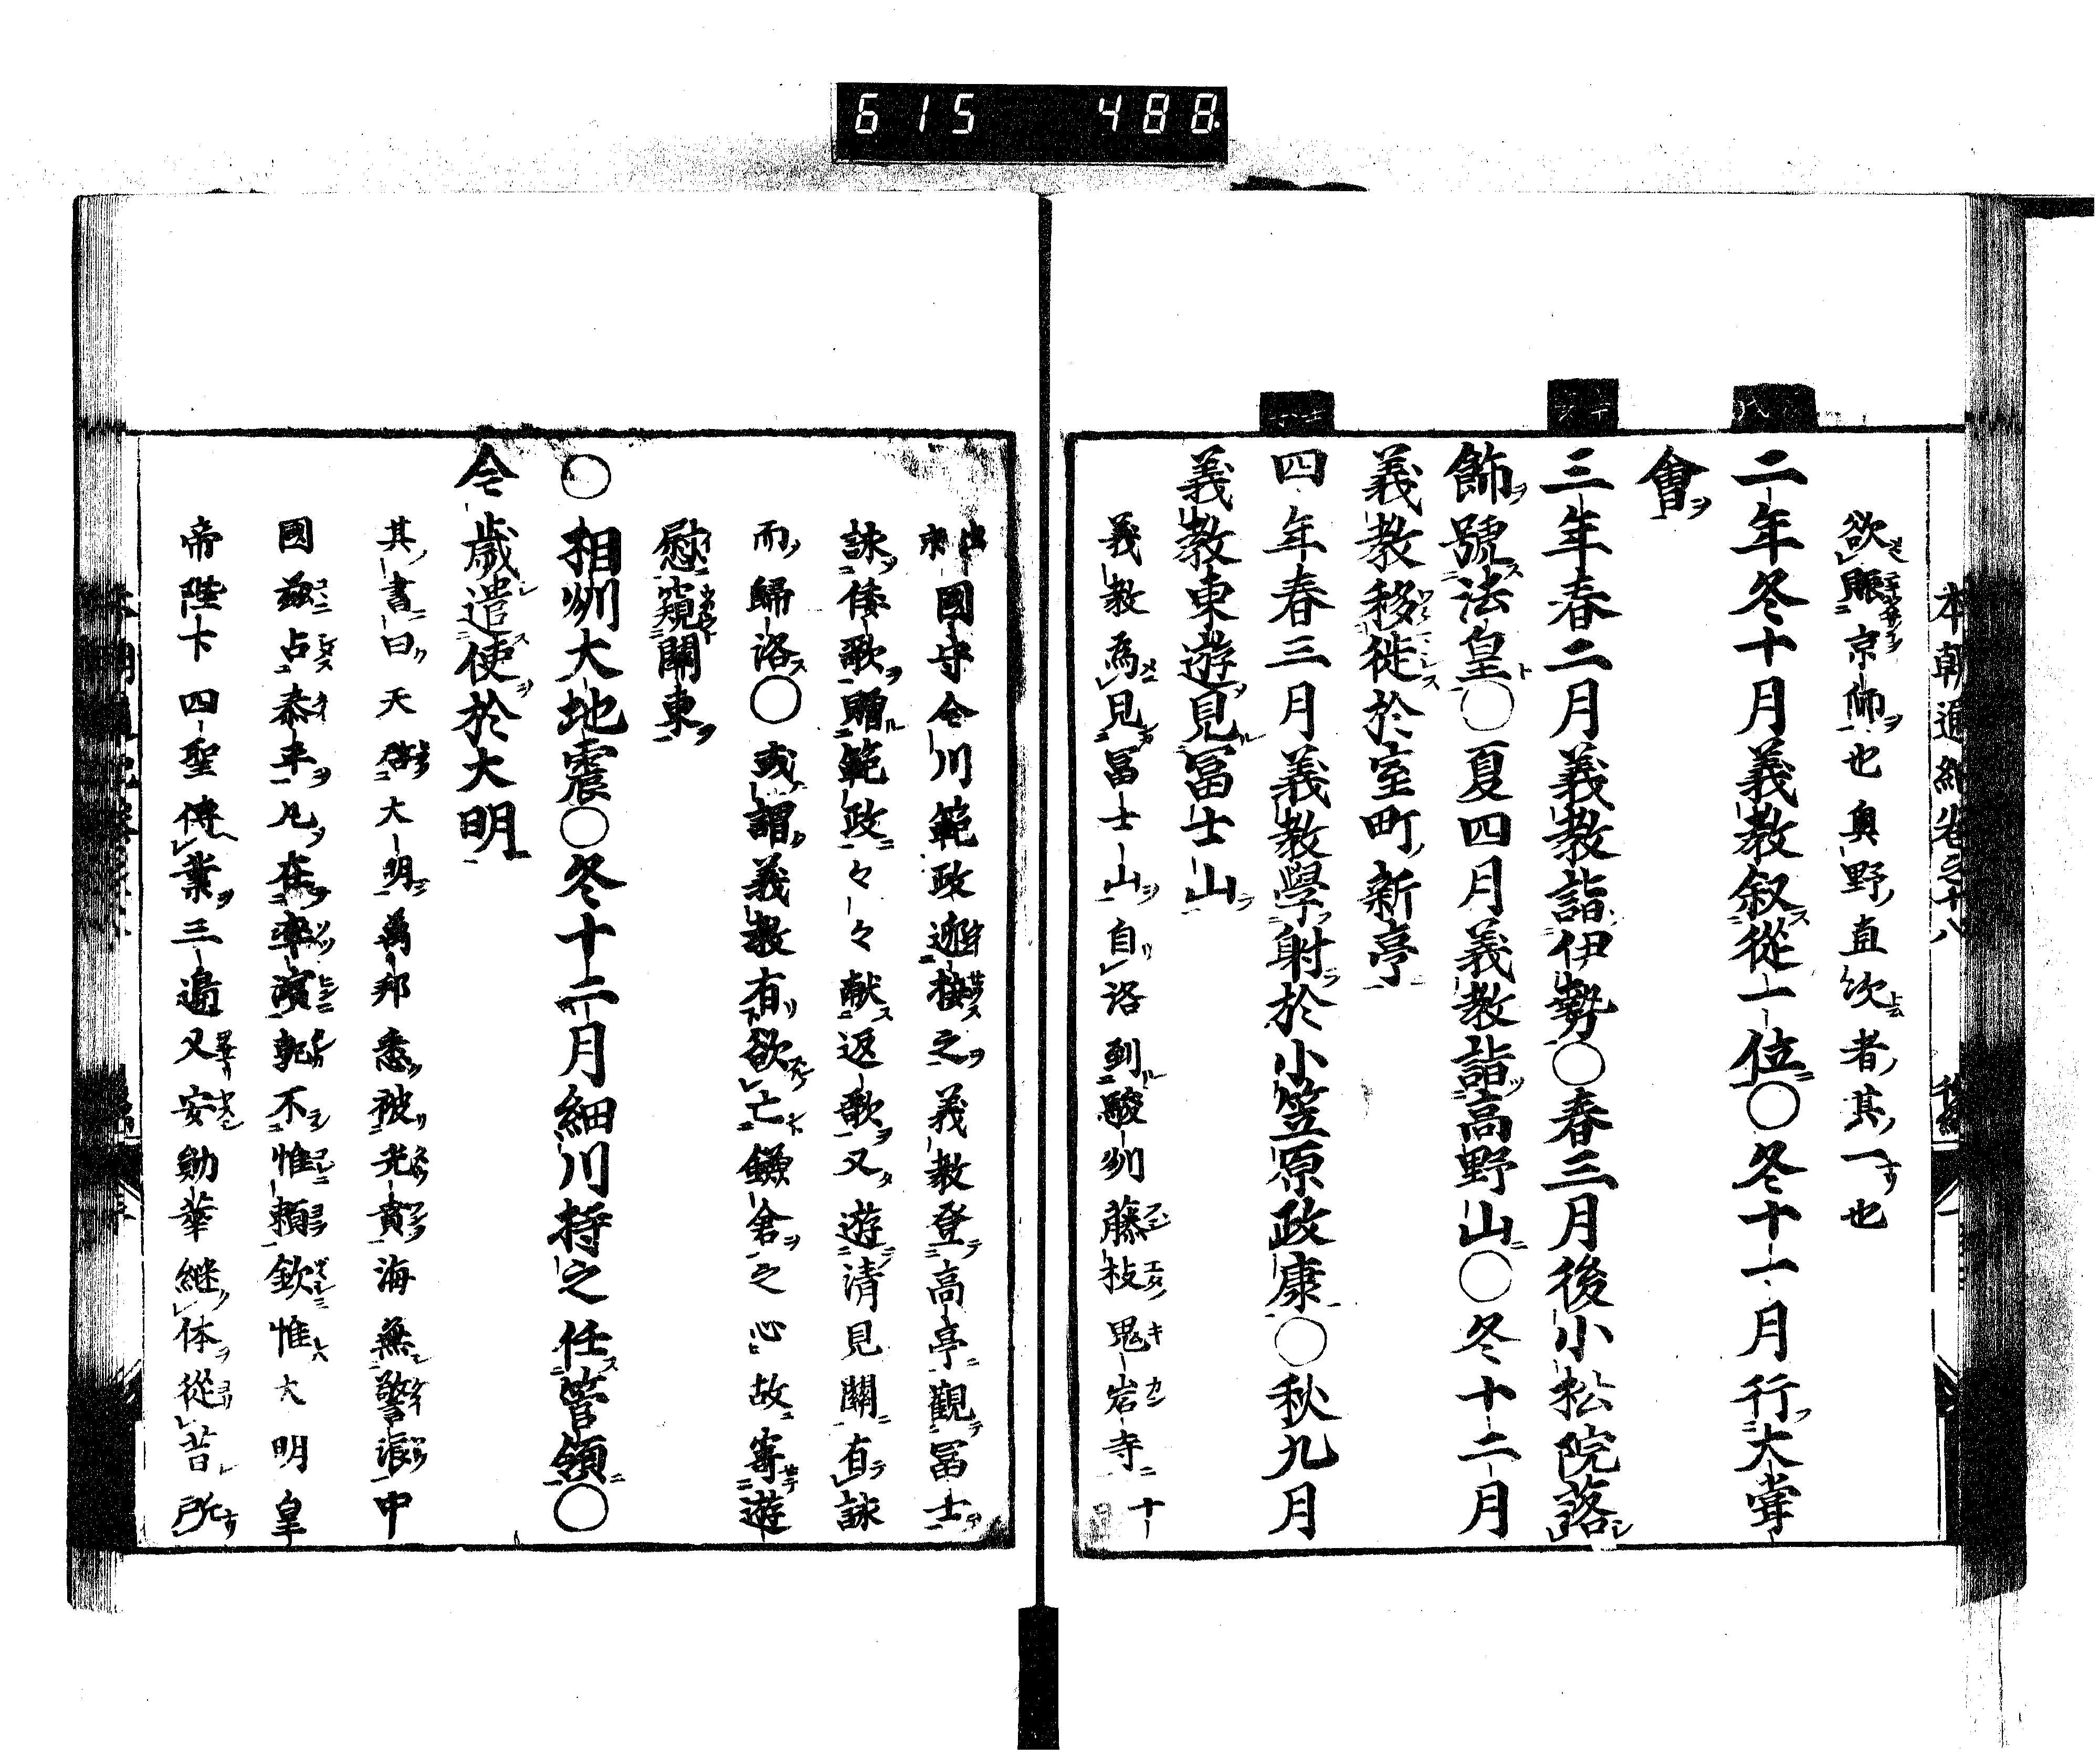 615 488
本朝通紀卷之十八 後編
欲賑京師也奥野直次者其一也
二年冬十月義教叙從一位○冬十一月行大嘗
會
三年春二月義教詣伊勢○春三月後小松院落
飾號法皇○夏四月義教詣高野山○冬十二月
義教移徙於室町新亭
四年春三月義教學射於小笠原政康○秋九月
義教東遊見冨士山
義教為見冨士山自洛到駿州藤枝鬼岩寺十
國守今川範政逆接之義教登高亭觀冨士
詠倭歌贈範政々々献返歌又遊清見關有詠
而歸洛○或謂義教有欲亡鎌倉之心故寄遊
慰窺關東
○相州大地震○冬十二月細川持之任管領○
今歳遣使於大明
其書曰天啓大明萬邦悉被光賁海無驚浪中
國茲占泰平凡在率濱孰不惟頼欽惟大明皇
帝陛下四聖傳業三邊又安勛華継体從昔所